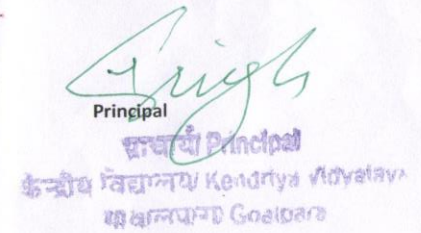 Principal
प्राचार्य/ Principal
केन्द्रीय विद्यालय/ Kendriya Vidyalaya
Goalpara